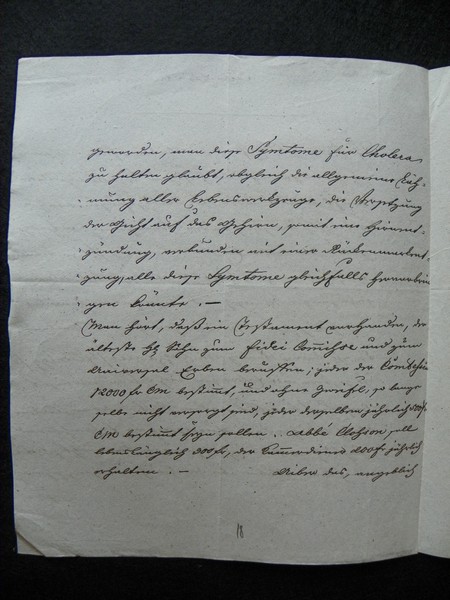 geworden, man diese Symtome für Cholera
zu halten glaubt, obgleich die allgemeine Läh-
mung aller Lebenswerkzeuge, die Versetzung
der Gicht auf das Gehirn, somit eine Hirnent-
zündung, verbunden mit einer Rückenmarkent-
zündung, alle diese Symtome gleichfalls hervorbrin-
gen könnte. –
Man hört, daß ein Testament vorhanden, der
älteste H Sohn zum Fidei und zum
Universal Erben; jede der Comtessen
12000 fr CM bestimmt, und ohne Zweifel, so lange
selbe nicht versorgt sind, jede derselben jährlich
CM bestimmt seyn sollen. Abbé soll
lebenslänglich 300 fr, der Kammerdiener 200 fr jährlich
erhalten. – Ueber das, angeblich
18